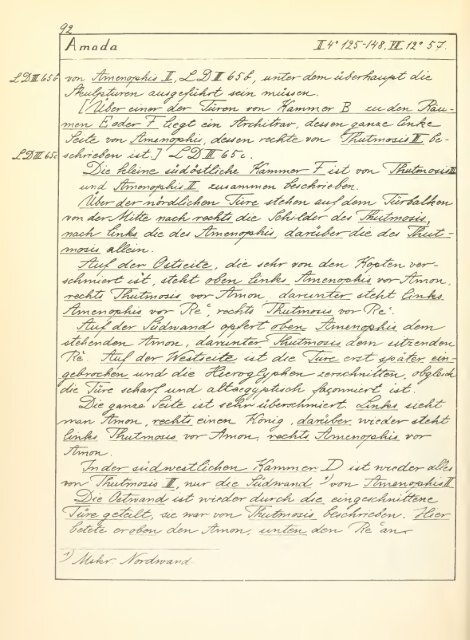 92
Amada II 4° 125-148, III 12° 57.
LD III 65b von Amenophis II, LD III 65b, unter dem überhaupt die
Skulpturen ausgeführt sein müssen.
[Über einer der Türen von Kammer B zu den Räu-
men E oder F liegt ein Architrav, dessen ganze linke
Seite von Amenophis, dessen rechte von Thutmosis III be-
LD III 65c schrieben ist.] LD III 65c.
Die kleine südöstliche Kammer F ist von Thutmosis III
und Amenophis II zusammen beschrieben.
Über der nördlichen Türe stehen auf dem Türbalken
von der Mitte nach rechts die Schilder des Thutmosis,
nach links die des Amenophis, darüber die des Thut-
mosis allein.
Auf der Ostseite, die sehr von den Kopten ver-
schmiert ist, steht oben links Amenophis vor Amon,
rechts Thutmosis vor Amon, darunter steht links
Amenophis vor Re', rechts Thutmosis vor Re'.
Auf der Südwand opfert oben Amenophis dem
stehenden Amon, darunter Thutmosis dem sitzenden
Re'. Auf der Westseite ist die Türe erst später ein-
gebrochen und die Hieroglyphen zerschnitten, obgleich
die Türe scharf und altägyptisch façonniert ist.
Die ganze Seite ist sehr überschmiert. Links sieht
man Amon, rechts einen König, darüber wieder steht
links Thutmosis vor Amon, rechts Amenophis vor
Amon.
In der südwestlichen Kammer D ist wieder alles
von Thutmosis III, nur die Südwand ¹) von Amenophis II.
Die Ostwand ist wieder durch die eingeschnittene
Türe geteilt, sie war von Thutmosis beschrieben. Hier
betete er oben den Amon, unten den Re' an
¹) Mskr. Nordwand.